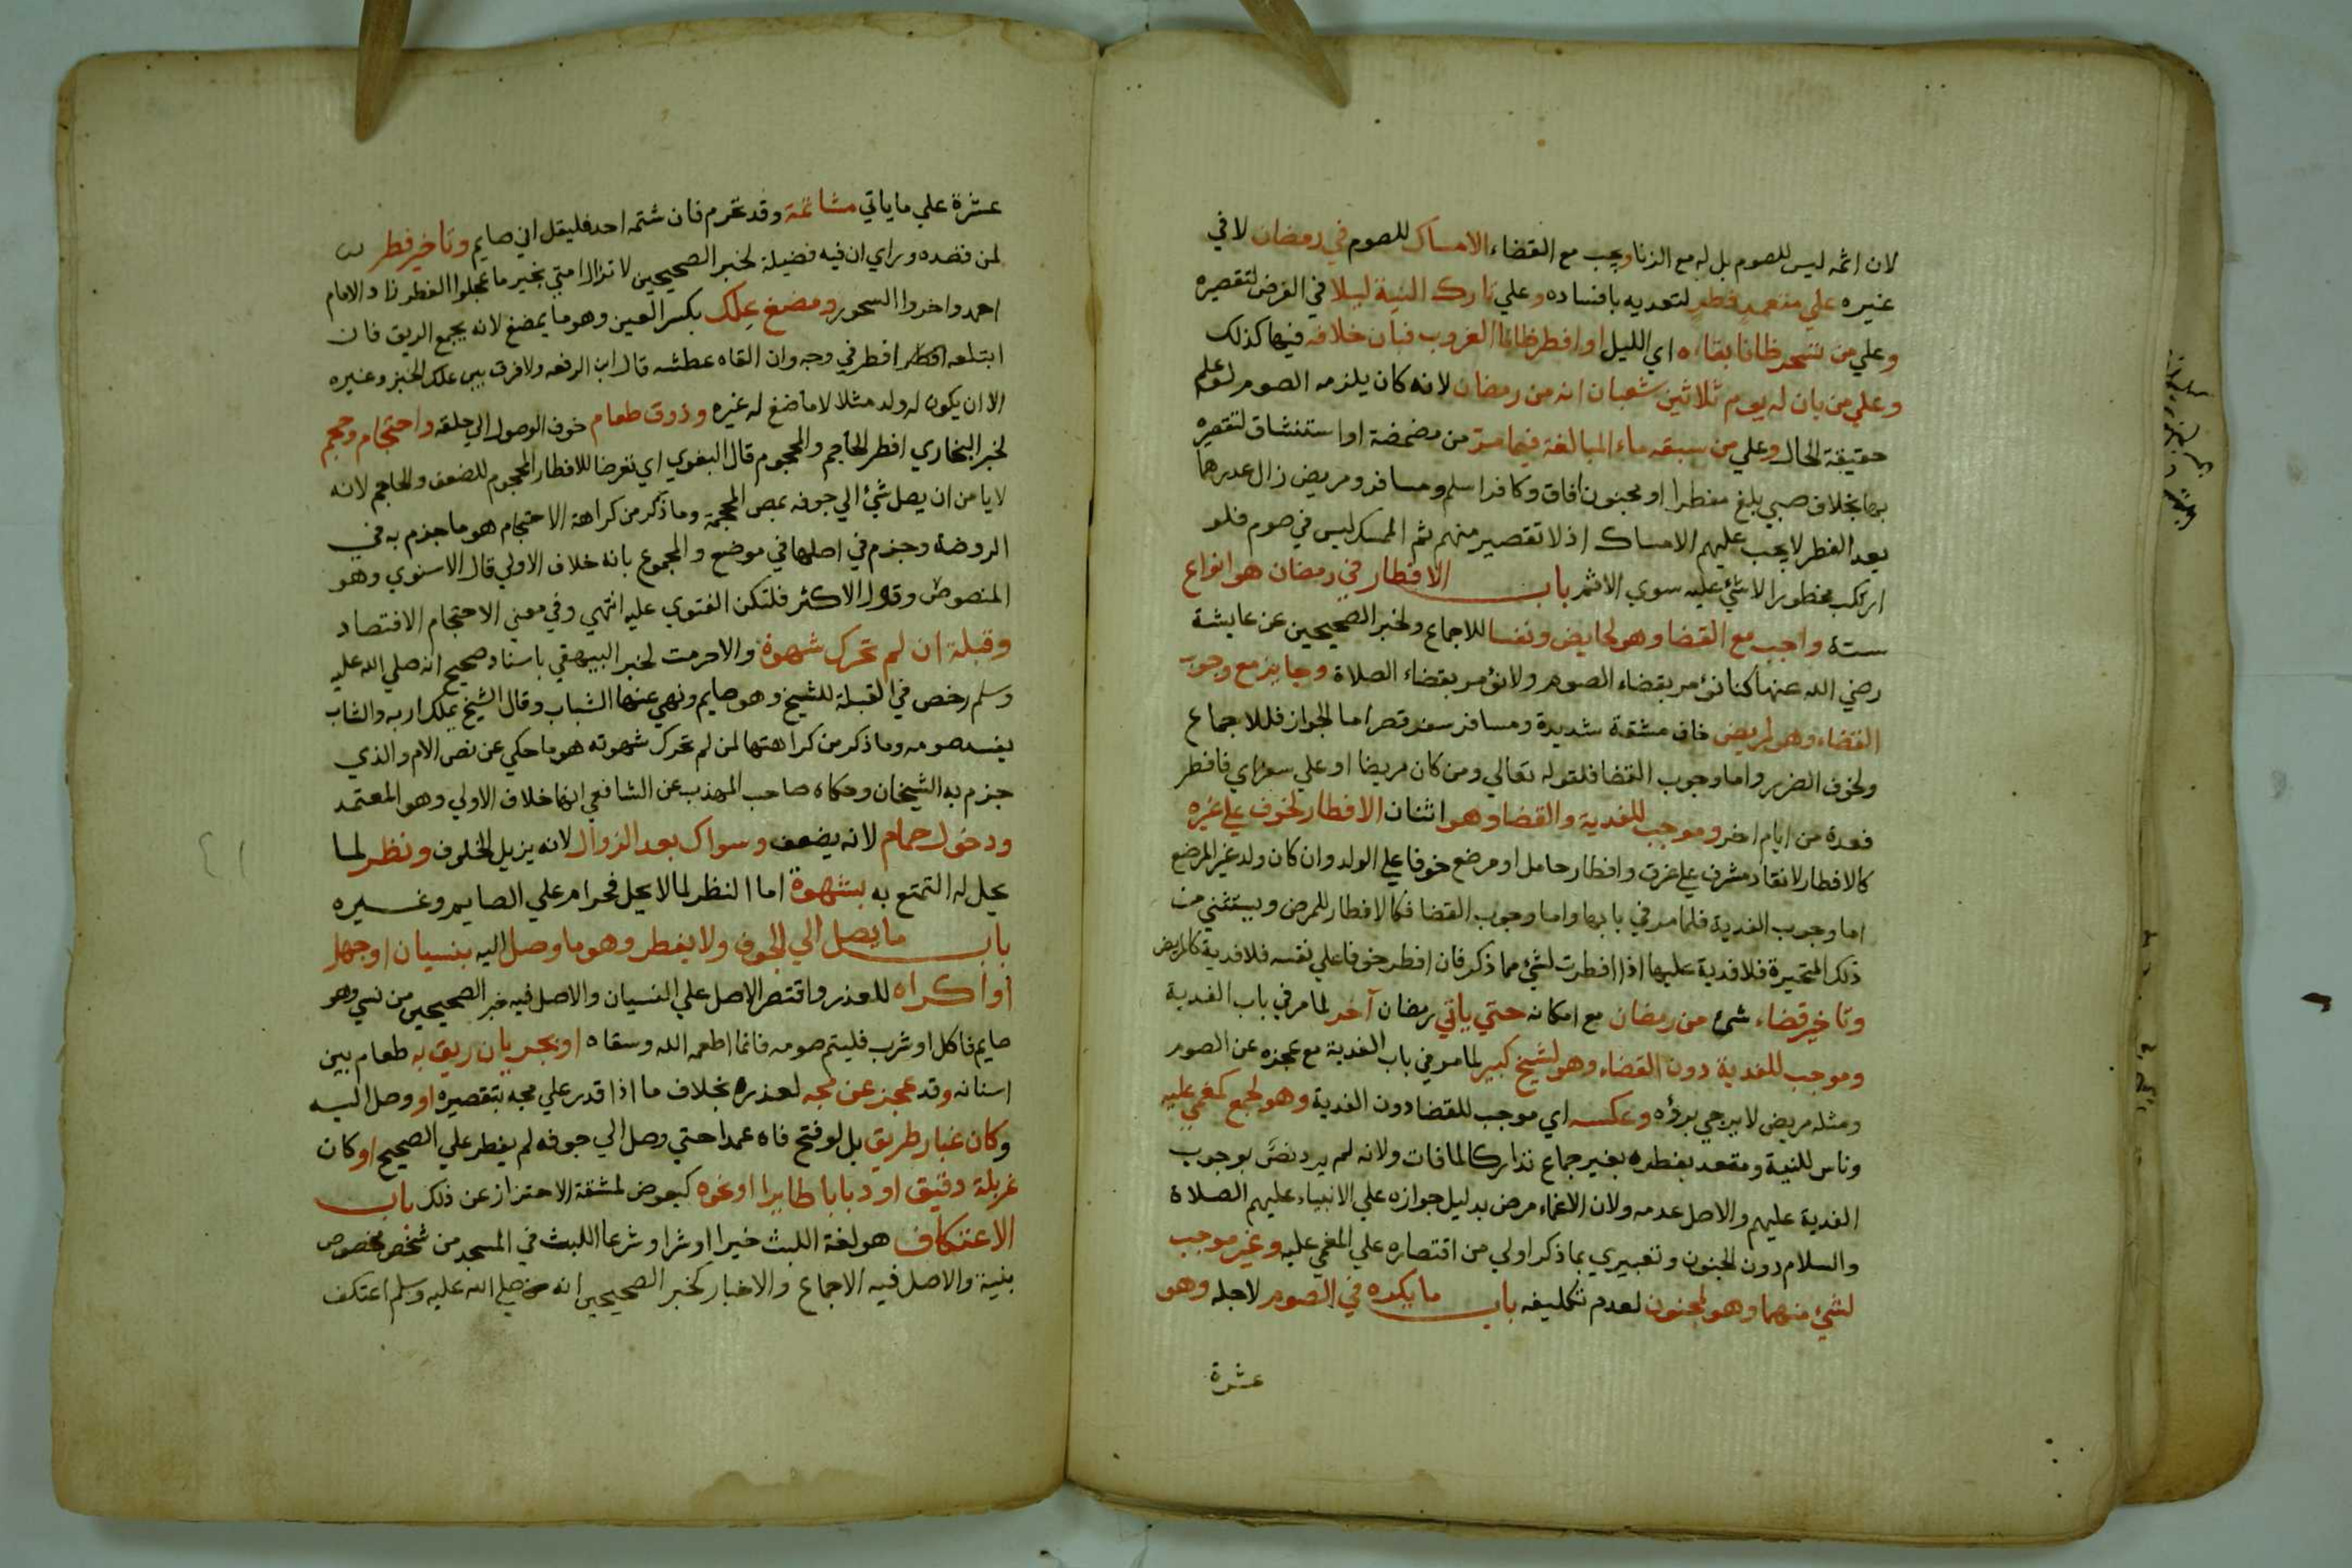 لان اثمه ليس للصوم بل له مع الزنا ويجب مع القضاء الامساك للصوم في رمضان لا في
غيره علي متعمد فطر لتعديه بافساده وعلي تارك النية ليلا في الفرض لتقصيره
وعلي من تسحر ظانا بقاءه اي الليل او افطر ظانا الغروب فبان خلافه فيهما كذلك
وعلي من بان له يوم ثلاثين شعبان انه من رمضان لانه كان يلزمه الصوم لو علم
حقيقة الحال وعلي من سبقه ماء المبالغة فيما مر من مضمضة او استنشاق لتقصيره
بها بخلاف صبي بلغ مفطرا او مجنون افاق وكافر اسلم ومسافر ومريض زال عذرهما
بعد الفطر لا يجب عليهم الامساك اذ لا تقصير منهم ثم الممسك ليس في صوم فلو
ارتكب محظورا لا شئ عليه سوي الاثم باب الافطار في رمضان هو انواع
ستة واجب مع القضا وهو لحايض ونفسا للاجماع ولخبر الصحيحين عن عايشة
رضي الله عنها كنا نؤمر بقضاء الصوم ولا نؤمر بقضاء الصلاة وجايز مع وجوب
القضاء وهو لمريض خاف مشقة شديدة ومسافر سفر قصر اما الجواز فللاجماع
ولخوف الضرر واما وجوب القضا فلقوله تعالي ومن كان مريضا او علي سفر اي فافطر
فعدة من ايام اخر وموجب للفدية والقضا وهو اثنان الافطار لخوف علي غيره
كالافطار لانقاذ مشرف علي غرق وافطار حامل او مرضع خوفا علي الولد وان كان ولد غير المرضع
اما وجوب الفدية فلما مر في بابها واما وجوب القضا فكالافطار للمرض ويستثني من
ذلك المتحيرة فلا فدية عليها اذا افطرت لشئ مما ذكر فان افطر خوفا علي نفسه فلا فدية كالمريض
وتاخير قضاء شئ من رمضان مع امكانه حتي ياتي رمضان آخر لما مر في باب الفدية
وموجب للفدية دون القضاء وهو لشيخ كبير لما مر في باب الفدية مع عجزه عن الصوم
ومثله مريض لا يرجي برؤه وعكسه اي موجب للقضا دون الفدية وهو لجمع كمغمي عليه
وناس للنية ومتعد بفطره بغير جماع تداركا لما فات ولانه لم يرد نص بوجوب
الفدية عليهم والاصل عدمه ولان الاغماء مرض بدليل جوازه علي الانبياء عليهم الصلاة
والسلام دون الجنون وتعبيري بما ذكر اولي من اقتصاره علي المغمي عليه وغير موجب
لشئ منهما وهو لمجنون لعدم تكليفه باب ما يكره في الصوم لاجله وهو
عشرة
عشرة علي ما ياتي مشاتمة وقد تحرم فان شتمه احد فليقل اني صايم وتاخير فطر
لمن قصده وراي ان فيه فضيلة لخبر الصحيحين لا تزال امتي بخير ما عجلوا الفطر زاد الامام
احمد واخروا السحور ومضغ علك بكسر العين وهو ما يمضغ لانه يجمع الريق فان
ابتلعه افطر في وجه وان القاه عطشه قال ابن الرفعه ولا فرق بين علك الخبز وغيره
الا ان يكون له ولد مثلا لا ماضغ له غيره وذوق طعام خوف الوصول الي حلقه واحتجام وحجم
لخبر البخاري افطر الحاجم والمحجوم قال البغوي اي تعرضا للافطار المحجوم للضعف والحاجم لانه
لا يامن ان يصل شئ الي جوفه بمص المحجمة وما ذكر من كراهة الاحتجام هو ما جزم به في
الروضة وجزم في اصلها في موضع والمجموع بانه خلاف الاولي قال الاسنوي وهو
المنصوص وقول الاكثر فلتكن الفتوي عليه انتهي وفي معني الاحتجام الافتصاد
وقبلة ان لم تحرك شهوة والا حرمت لخبر البيهقي باسناد صحيح انه صلي الله عليه
وسلم رخص في القبلة للشيخ وهو صايم ونهي عنها الشباب وقال الشيخ يملك اربه والشاب
يفسد صومه وما ذكر من كراهتها لمن لم تحرك شهوته هو ما حكي عن نص الام والذي
جزم به الشيخان وحكاه صاحب المهذب عن الشافعي انها خلاف الاولي وهو المعتمد
ودخول حمام لانه يضعف وسواك بعد الزوال لانه يزيل الخلوف ونظر لما
يحل له التمتع به بشهوة اما النظر لما لا يحل فحرام علي الصايم وغيره
باب ما يصل الي الجوف ولا يفطر وهو ما وصل اليه بنسيان او جهل
او اكراه للعذر واقتصر الاصل علي النسيان والاصل فيه خبر الصحيحين من نسي وهو
صايم فاكل او شرب فليتم صومه فانما اطعمه الله وسقاه او بجريان ريق به طعام بين
اسنانه وقد عجز عن مجه لعذره بخلاف ما اذا قدر علي مجه لتقصيره او وصل اليه
وكان غبار طريق بل لو فتح فاه عمدا حتي وصل الي جوفه لم يفطر علي الصحيح او كان
غربلة دقيق او ذبابا طايرا او نحوه كبعوض لمشقة الاحتراز عن ذلك باب
الاعتكاف هو لغة اللبث خيرا او شرا وشرعا اللبث في المسجد من شخص مخصوص
بنية والاصل فيه الاجماع والاخبار كخبر الصحيحين انه صلي الله عليه وسلم اعتكف